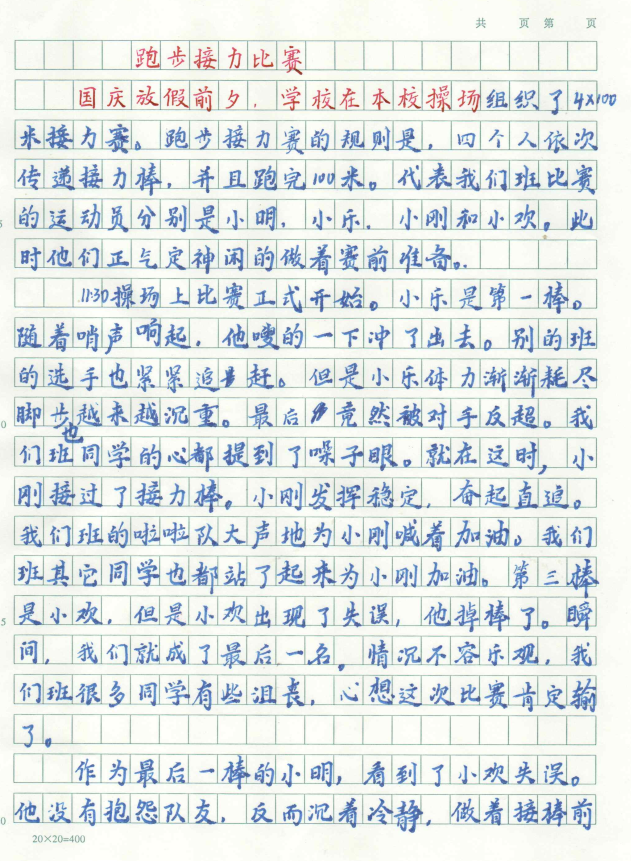 共 页 第 页
跑步接力比赛
国庆放假前夕，学校在本校操场组织了4×100
米接力赛。跑步接力赛的规则是，四个人依次
传递接力棒，并且跑完100米。代表我们班比赛
的运动员分别是小明，小乐，小刚和小欢。此
时他们正气定神闲的做着赛前准备。
11:30操场上比赛正式开始。小乐是第一棒。
随着哨声响起，他嗖的一下冲了出去。别的班
的选手也紧紧追赶。但是小乐体力渐渐耗尽
脚步也越来越沉重。最后竟然被对手反超。我
们班同学的心都提到了嗓子眼。就在这时，小
刚接过了接力棒。小刚发挥稳定，奋起直追。
我们班的啦啦队大声地为小刚喊着加油。我们
班其它同学也都站了起来为小刚加油。第三棒
是小欢，但是小欢出现了失误，他掉棒了。瞬
间，我们就成了最后一名。情况不容乐观，我
们班很多同学有些沮丧，心想这次比赛肯定输
了。
作为最后一棒的小明，看到了小欢失误。
他没有抱怨队友，反而沉着冷静，做着接棒前
20×20=400